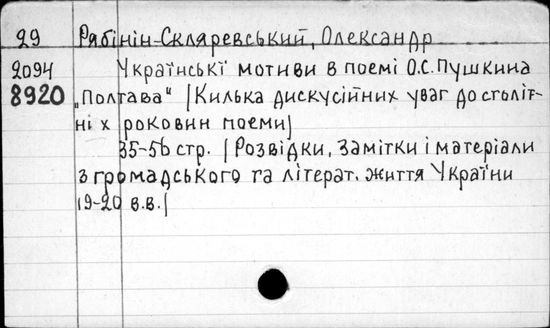 29 Рябінін-Скляревський, Олександр
2094 Українські мотиви в поемі О.С. Пушкина
8920 „Полтава" [Килька дискусійних уваг до століт-
ніх роковин поеми]
35-56 стр. [Розвідки, замітки і матеріали
з громадського та літерат. життя України
19-20 в.в.]